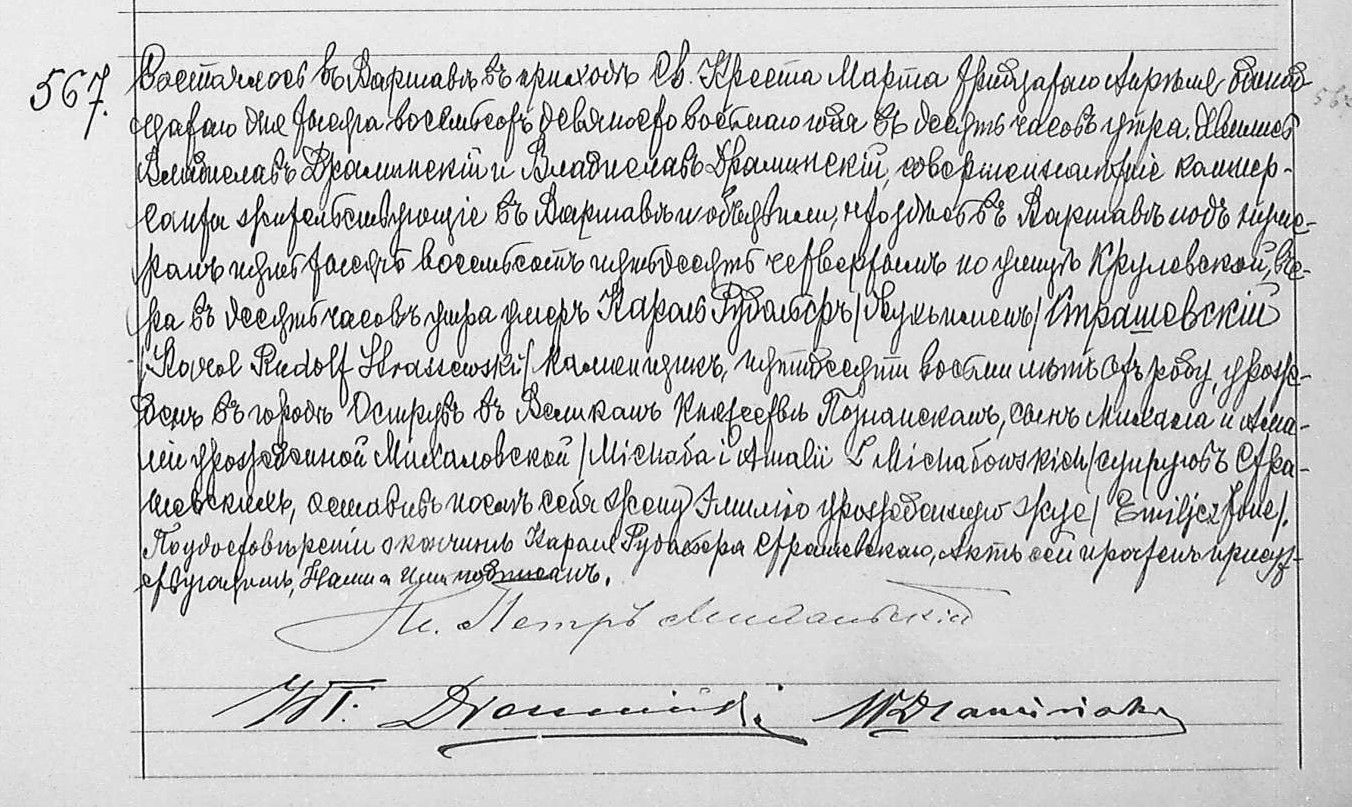 567.
Состоялось въ Варшавѣ въ приходѣ Св. Креста Марта тридцатаго Апрѣля одинад-
цатаго дня тысяча восемьсотъ девяносто восьмаго года въ десять часовъ утра. Явились
Владиславъ Драминскій и Владиславъ Драминскій, совершеннолѣтніе коммер-
санты жительствующіе въ Варшавѣ и объявили, что здѣсь въ Варшавѣ подъ нуме-
ромъ тысяча восемьсотъ четвертымъ по улицѣ Крулевской, вче-
ра въ десять часовъ утра умеръ Кароль Рудольфъ /двухъименъ/ Страшевскій
/Karol Rudolf Straszewski/ пятидесяти восьми лѣтъ отъ роду, урож-
денъ въ городѣ Островѣ въ Великомъ Княжествѣ Познанскомъ, сынъ Михаила и Ама-
ліи урожденной Михаловской /Michała i Amalii z Michałowskich/ супруговъ Стра-
шевскихъ, оставивъ послѣ себя жену Эмилію урожденную /Emilję z /.
По удостовѣреніи о кончинѣ Кароля Рудольфа Страшевскаго, Актъ сей прочтенъ присут-
ствующимъ, Нами и ими подписанъ.
Кс. Петръ
Wł. Dramiński. W Dramiński